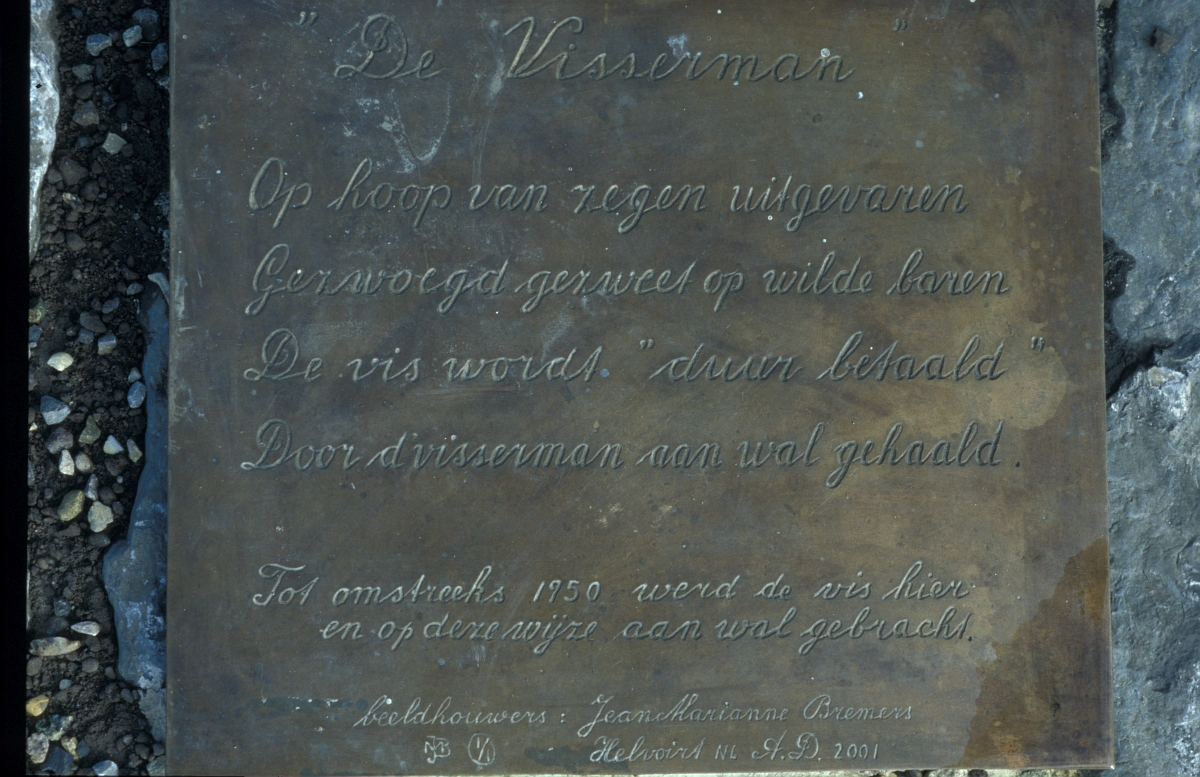 " De Visserman "
Op hoop van zegen uitgevaren
Gezwoegd gezweet op wilde baren
De vis wordt "duur betaald"
Door d'visserman aan wal gehaald.
Tot omstreeks 1950 werd de vis hier
en op deze wijze aan wal gebracht.
beeldhouwers: Jean Marianne Bremers
Helvoirt NL A.D. 2001